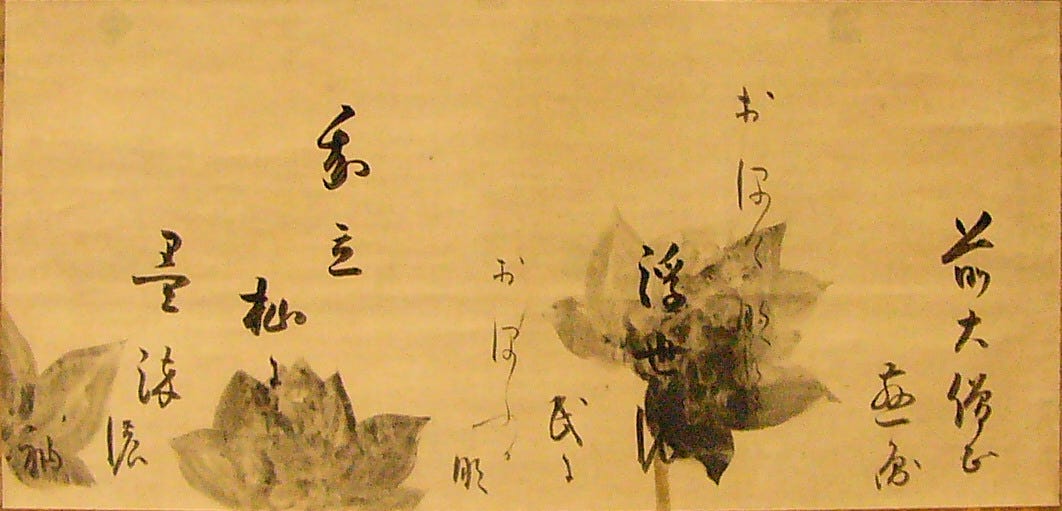 前大僧正
慈圓
おほけなく
浮世能
民に
おほふか那
我立
杣に
墨染濃
袖